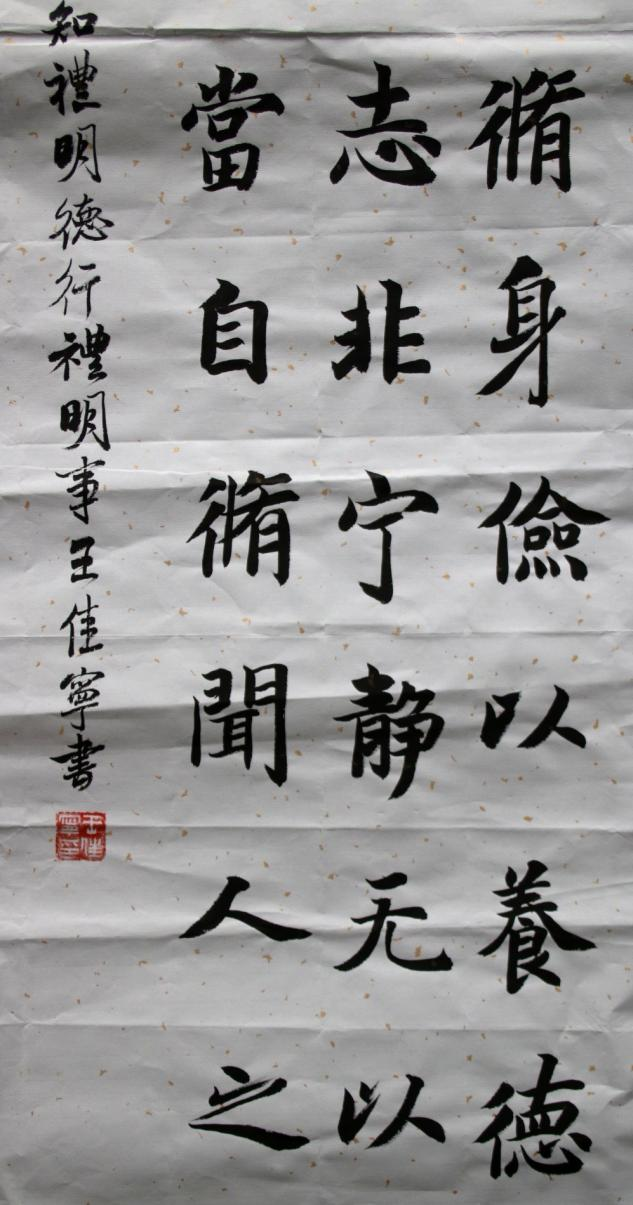 脩身儉以養德
志非宁静无以
當自脩聞人之
知禮明德行禮明事王佳寧書
王佳寧印